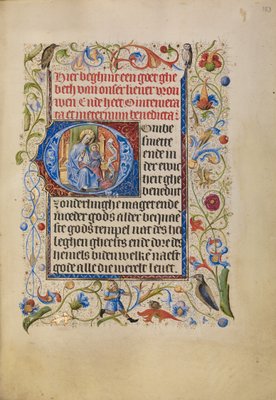 Hier beghint een goet ghe
beth van onser liever vrou
wen Ende heet O intemera
ta et in eternum benedicta:
Onbe
smette
ende in
der ewic
heit ghe
benedide
sonderlinghe maget ende
moeder gods alder
ste gods tempel des hei
leghen gheests ende die
hemels biden welke naest
gode alle die werelt levet.